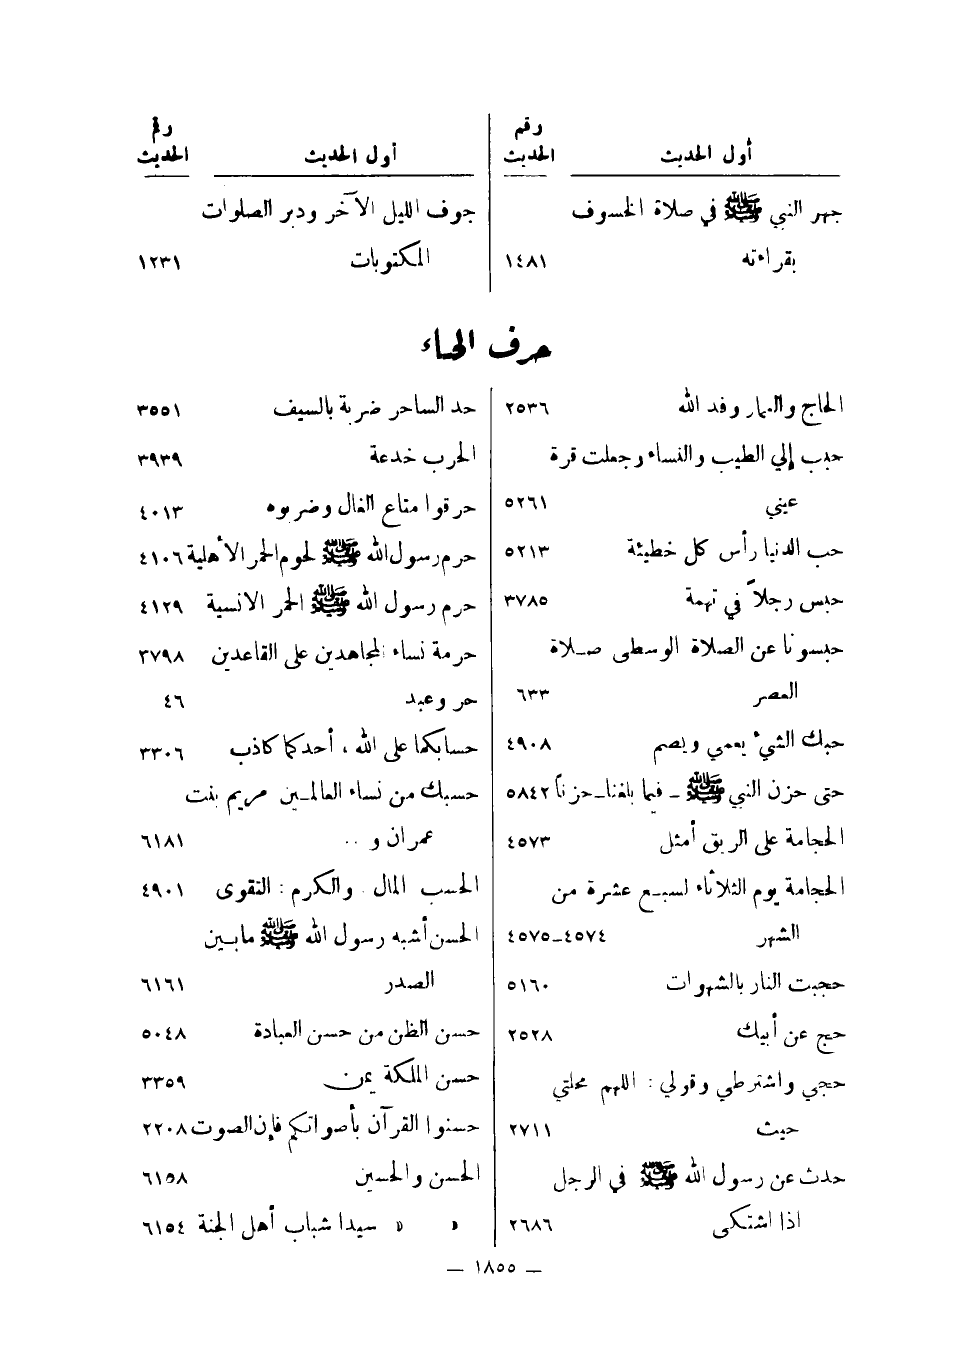 أول الحديث
رقم الحديث
جهر النبي ﷺ في صلاة الخسوف
بقراءته ١٤٨١
أول الحديث
رقم الحديث
جوف الليل الآخر ودبر الصلوات
المكتوبات ١٢٣١
حرف الحاء
الحاج والعمار وفد الله ٢٥٣٦
حبب إلي الطيب والنساء وجعلت قرة
عيني ٥٢٦١
حب الدنيا رأس كل خطيئة ٥٢١٣
حبس رجلاً في تهمة ٣٧٨٥
حبسونا عن الصلاة الوسطى صـلاة
العصر ٦٣٣
حبك الشيء يعمي ويصم ٤٩٠٨
حتى حزن النبي ﷺ ـ فيما بلغنا ـ حزناً ٥٨٤٢
الحجامة على الريق أمثل ٤٥٧٣
الحجامة يوم الثلاثاء لسبـع عشرة من
الشهر ٤٥٧٤ـ٤٥٧٥
حجبت النار بالشهوات ٥١٦٠
حج عن أبيك ٢٥٢٨
حجي واشترطي وقولي : اللهم محلتي
حيث ٢٧١١
حدث عن رسول الله ﷺ في الرجل
اذا اشتكى ٢٦٨٦
حد الساحر ضربة بالسيف ٣٥٥١
الحرب خدعة ٣٩٣٩
حرقوا متاع الغال وضربوه ٤٠١٣
حرم رسول الله ﷺ لحوم الحمر الأهلية ٤١٠٦
حرم رسول الله ﷺ الحمر الانسية ٤١٢٩
حرمة نساء المجاهدين على القاعدين ٣٧٩٨
حر وعبد ٤٦
حسابكما على الله ، أحدكما كاذب ٣٣٠٦
حسبك من نساء العالمـين مريم بنت
عمران و .. ٦١٨١
الحسب المال والكرم : التقوى ٤٩٠١
الحسن أشبه رسول الله ﷺ مابـين
الصدر ٦١٦١
حسن الظن من حسن العبادة ٥٠٤٨
حسن الملكة يمن ٣٣٥٩
حسنوا القرآن بأصواتكم فإن الصوت ٢٢٠٨
الحسن والحسين ٦١٥٨
« « سيدا شباب أهل الجنة ٦١٥٤
ـ ١٨٥٥ ـ